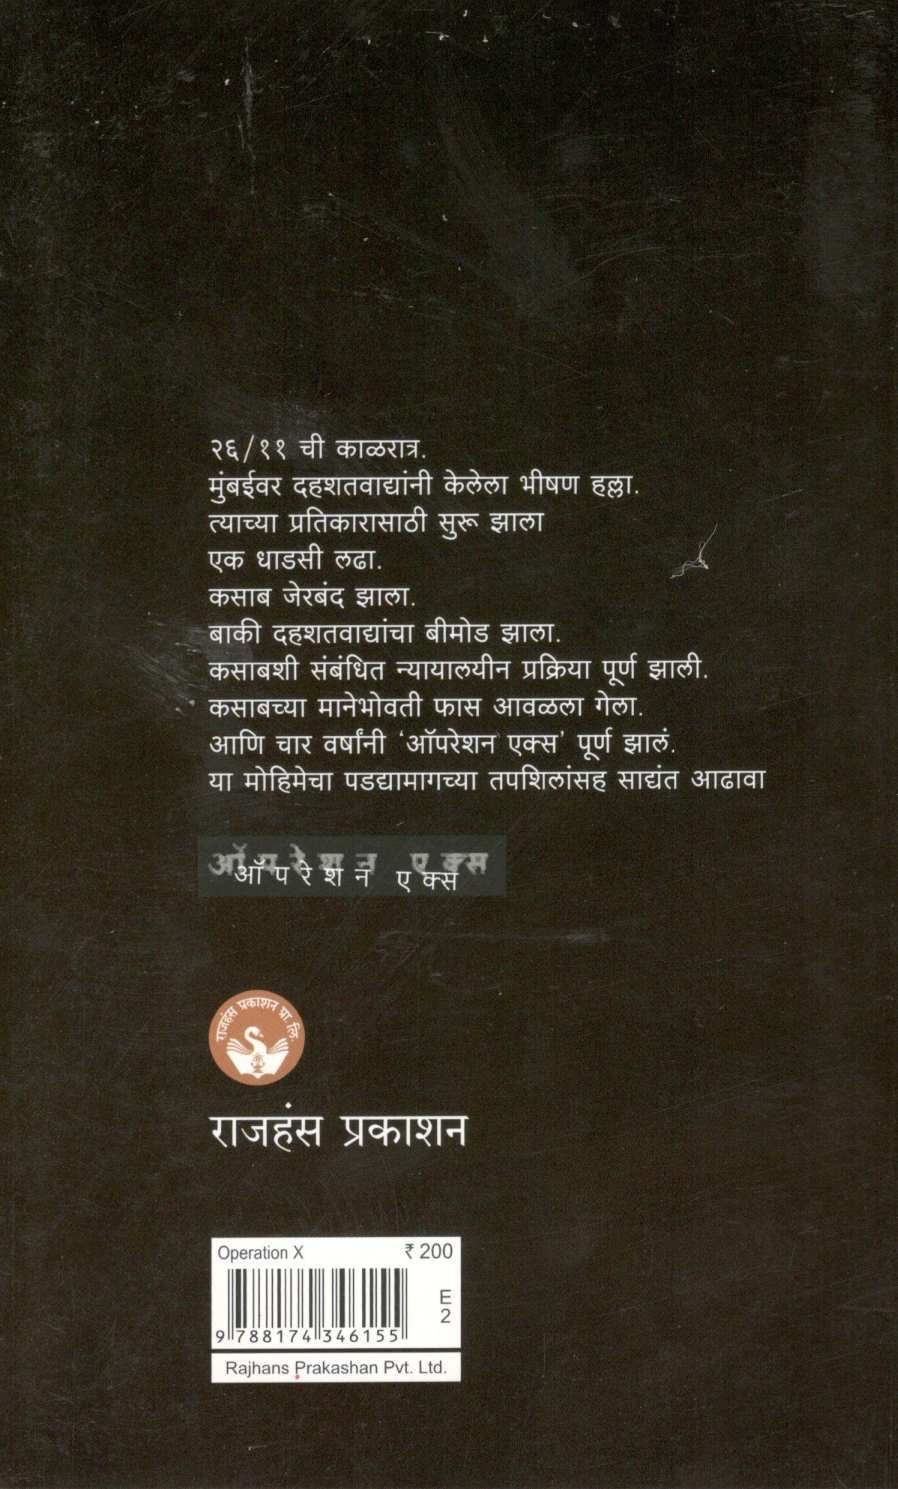 २६/११ ची काळरात्र.
मुंबईवर दहशतवाद्यांनी केलेला भीषण हल्ला.
त्याच्या प्रतिकारासाठी सुरू झाला
एक धाडसी लढा.
कसाब जेरबंद झाला.
बाकी दहशतवाद्यांचा बीमोड झाला.
कसाबशी संबंधित न्यायालयीन प्रक्रिया पूर्ण झाली.
कसाबच्या मानेभोवती फास आवळला गेला.
आणि चार वर्षांनी ‘ऑपरेशन एक्स’ पूर्ण झालं.
या मोहिमेचा पडद्यामागच्या तपशिलांसह साद्यंत आढावा
ऑपरेशन एक्स
ऑपरेशन एक्स
राजहंस प्रकाशन प्रा. लि.
राजहंस प्रकाशन
Operation X ₹ 200
E
2
9 788174 346155
Rajhans Prakashan Pvt. Ltd.